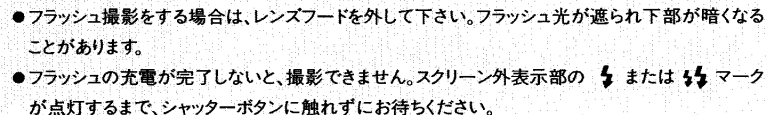 ●フラッシュ撮影をする場合は、レンズフードを外して下さい。フラッシュ光が遮られ下部が暗くなる
ことがあります。
●フラッシュの充電が完了しないと、撮影できません。スクリーン外表示部の または マーク
が点灯するまで、シャッターボタンに触れずにお待ちください。